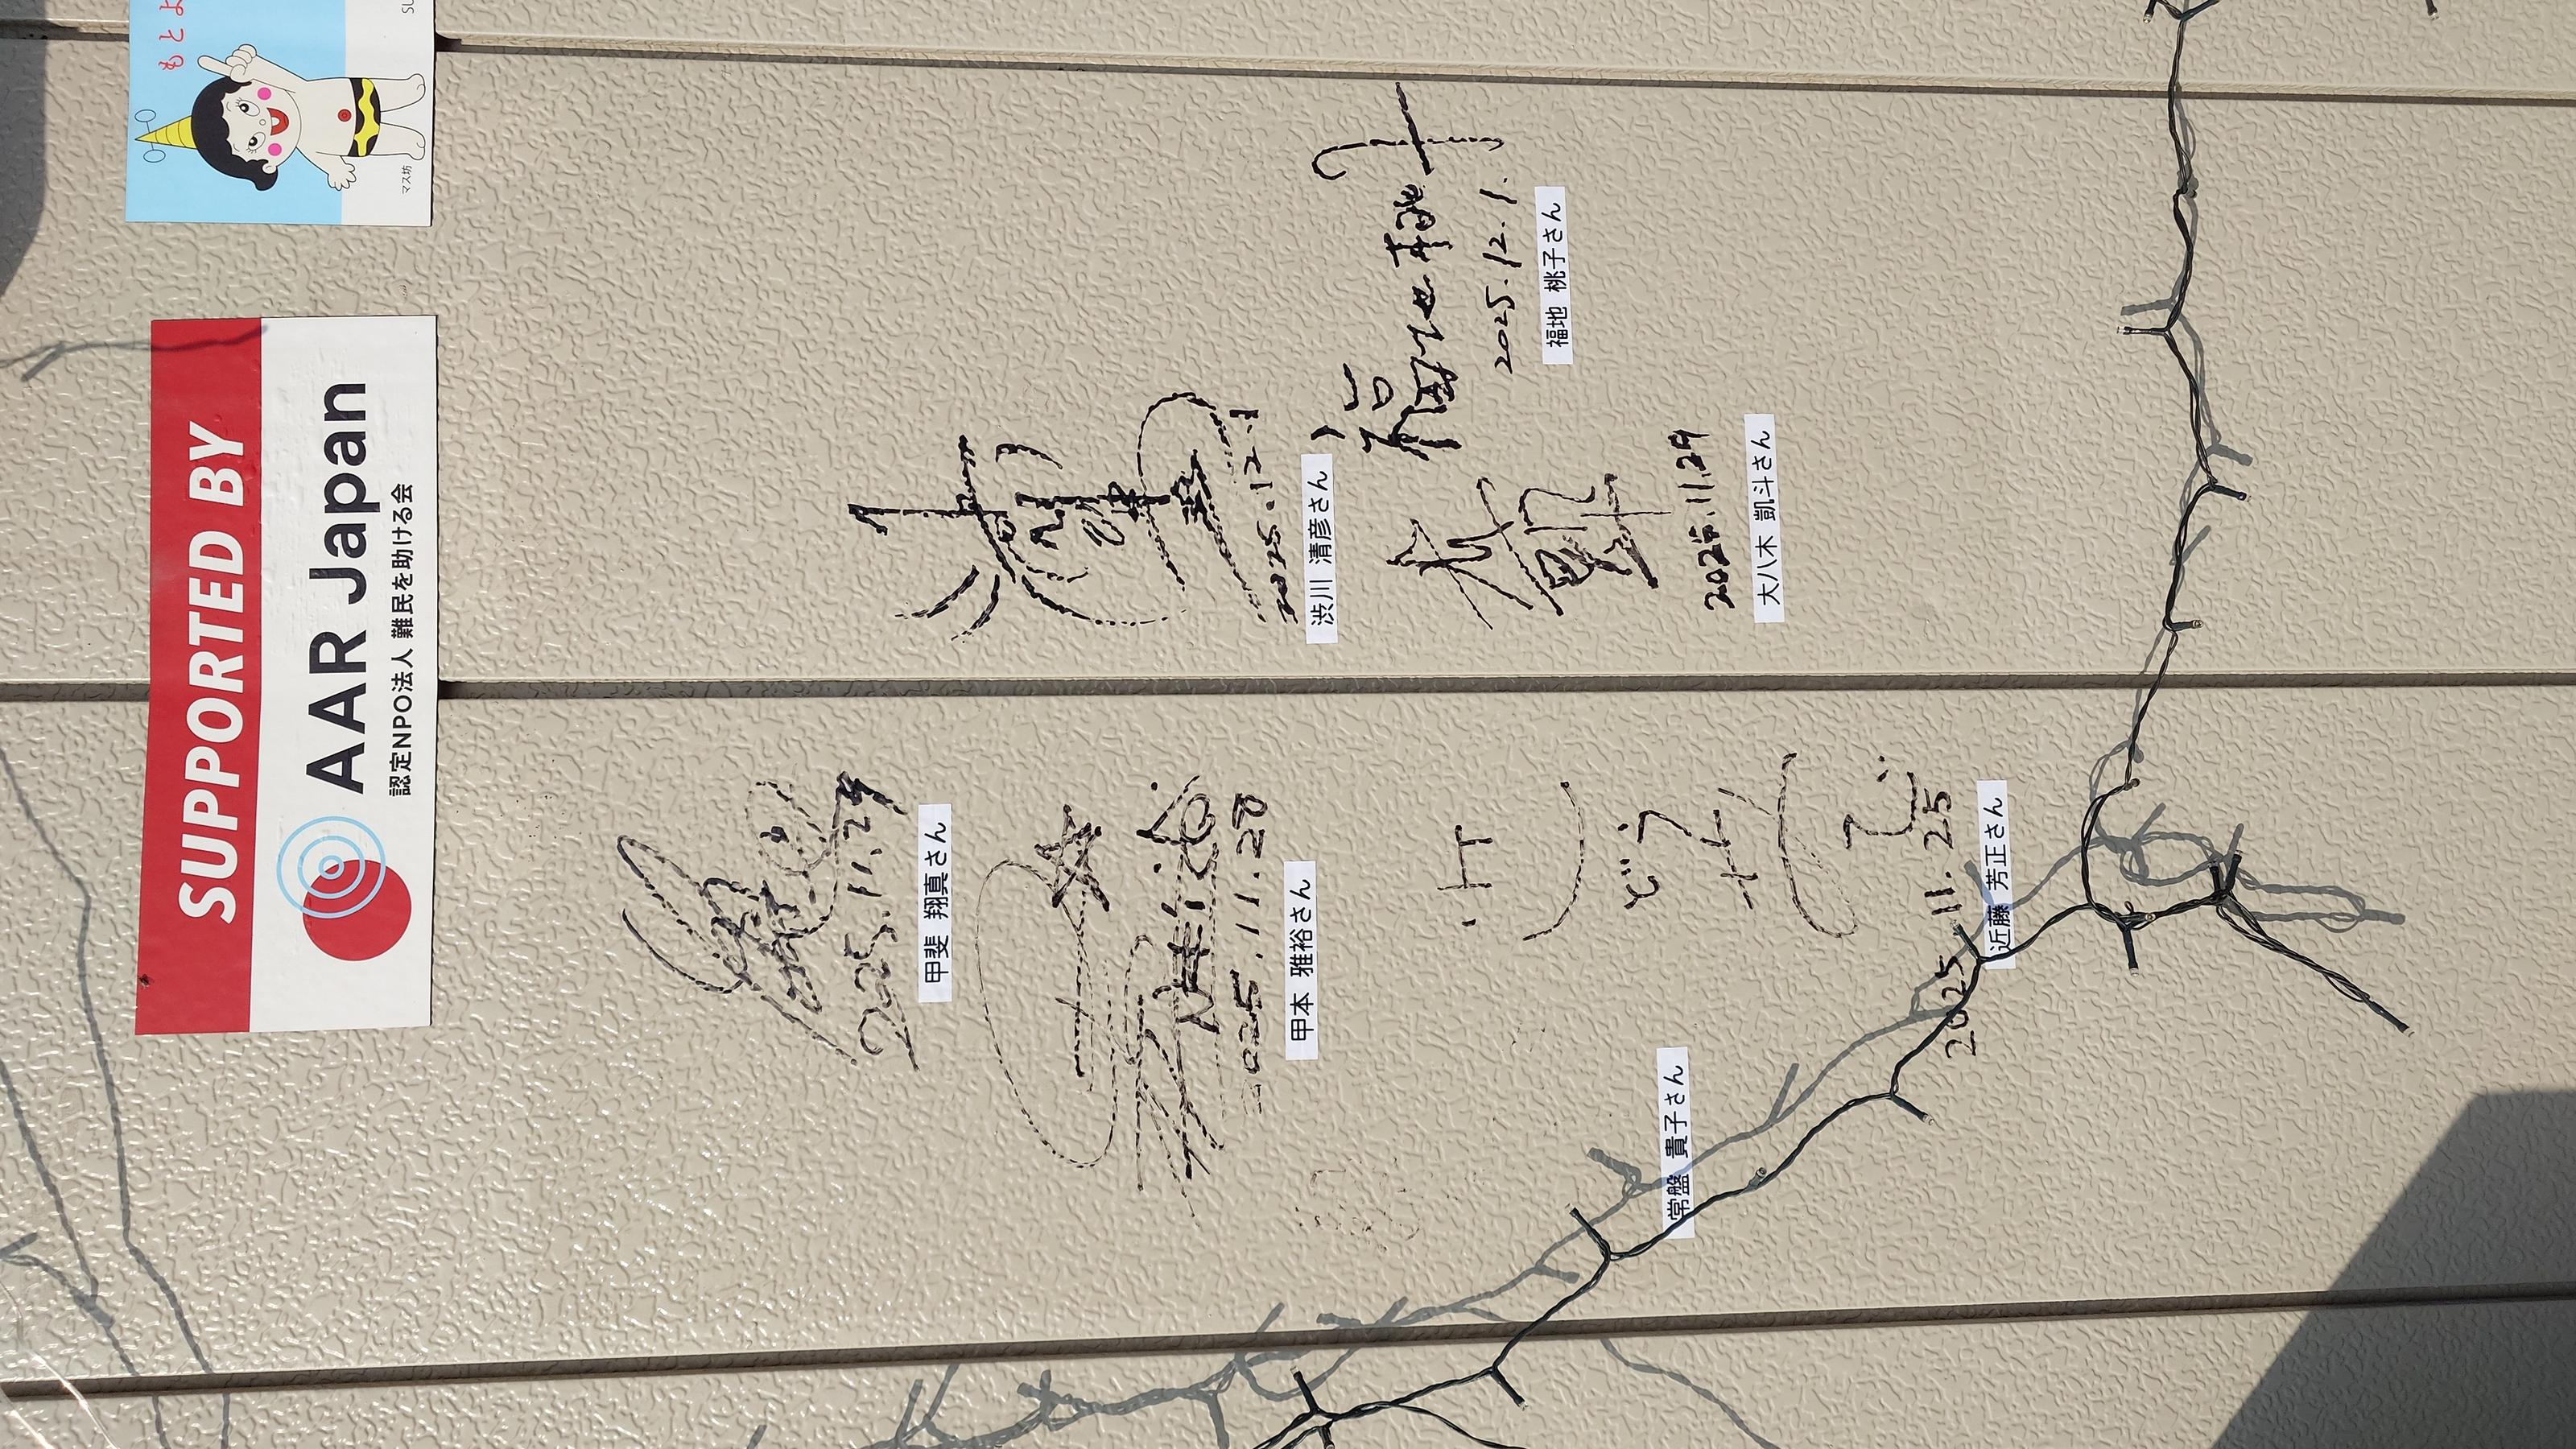 SUPPORTED BY
AAR Japan
認定NPO法人 難民を助ける会
もとよ
マス坊
SU
2025.11.29
甲斐 翔真さん
2025.11.28
甲本 雅裕さん
常盤 貴子さん
2025 11. 25
近藤 芳正さん
2025.12.1
渋川 清彦さん
2025.11.29
大八木 凱斗さん
福地桃子
2025.12.1.
福地 桃子さん